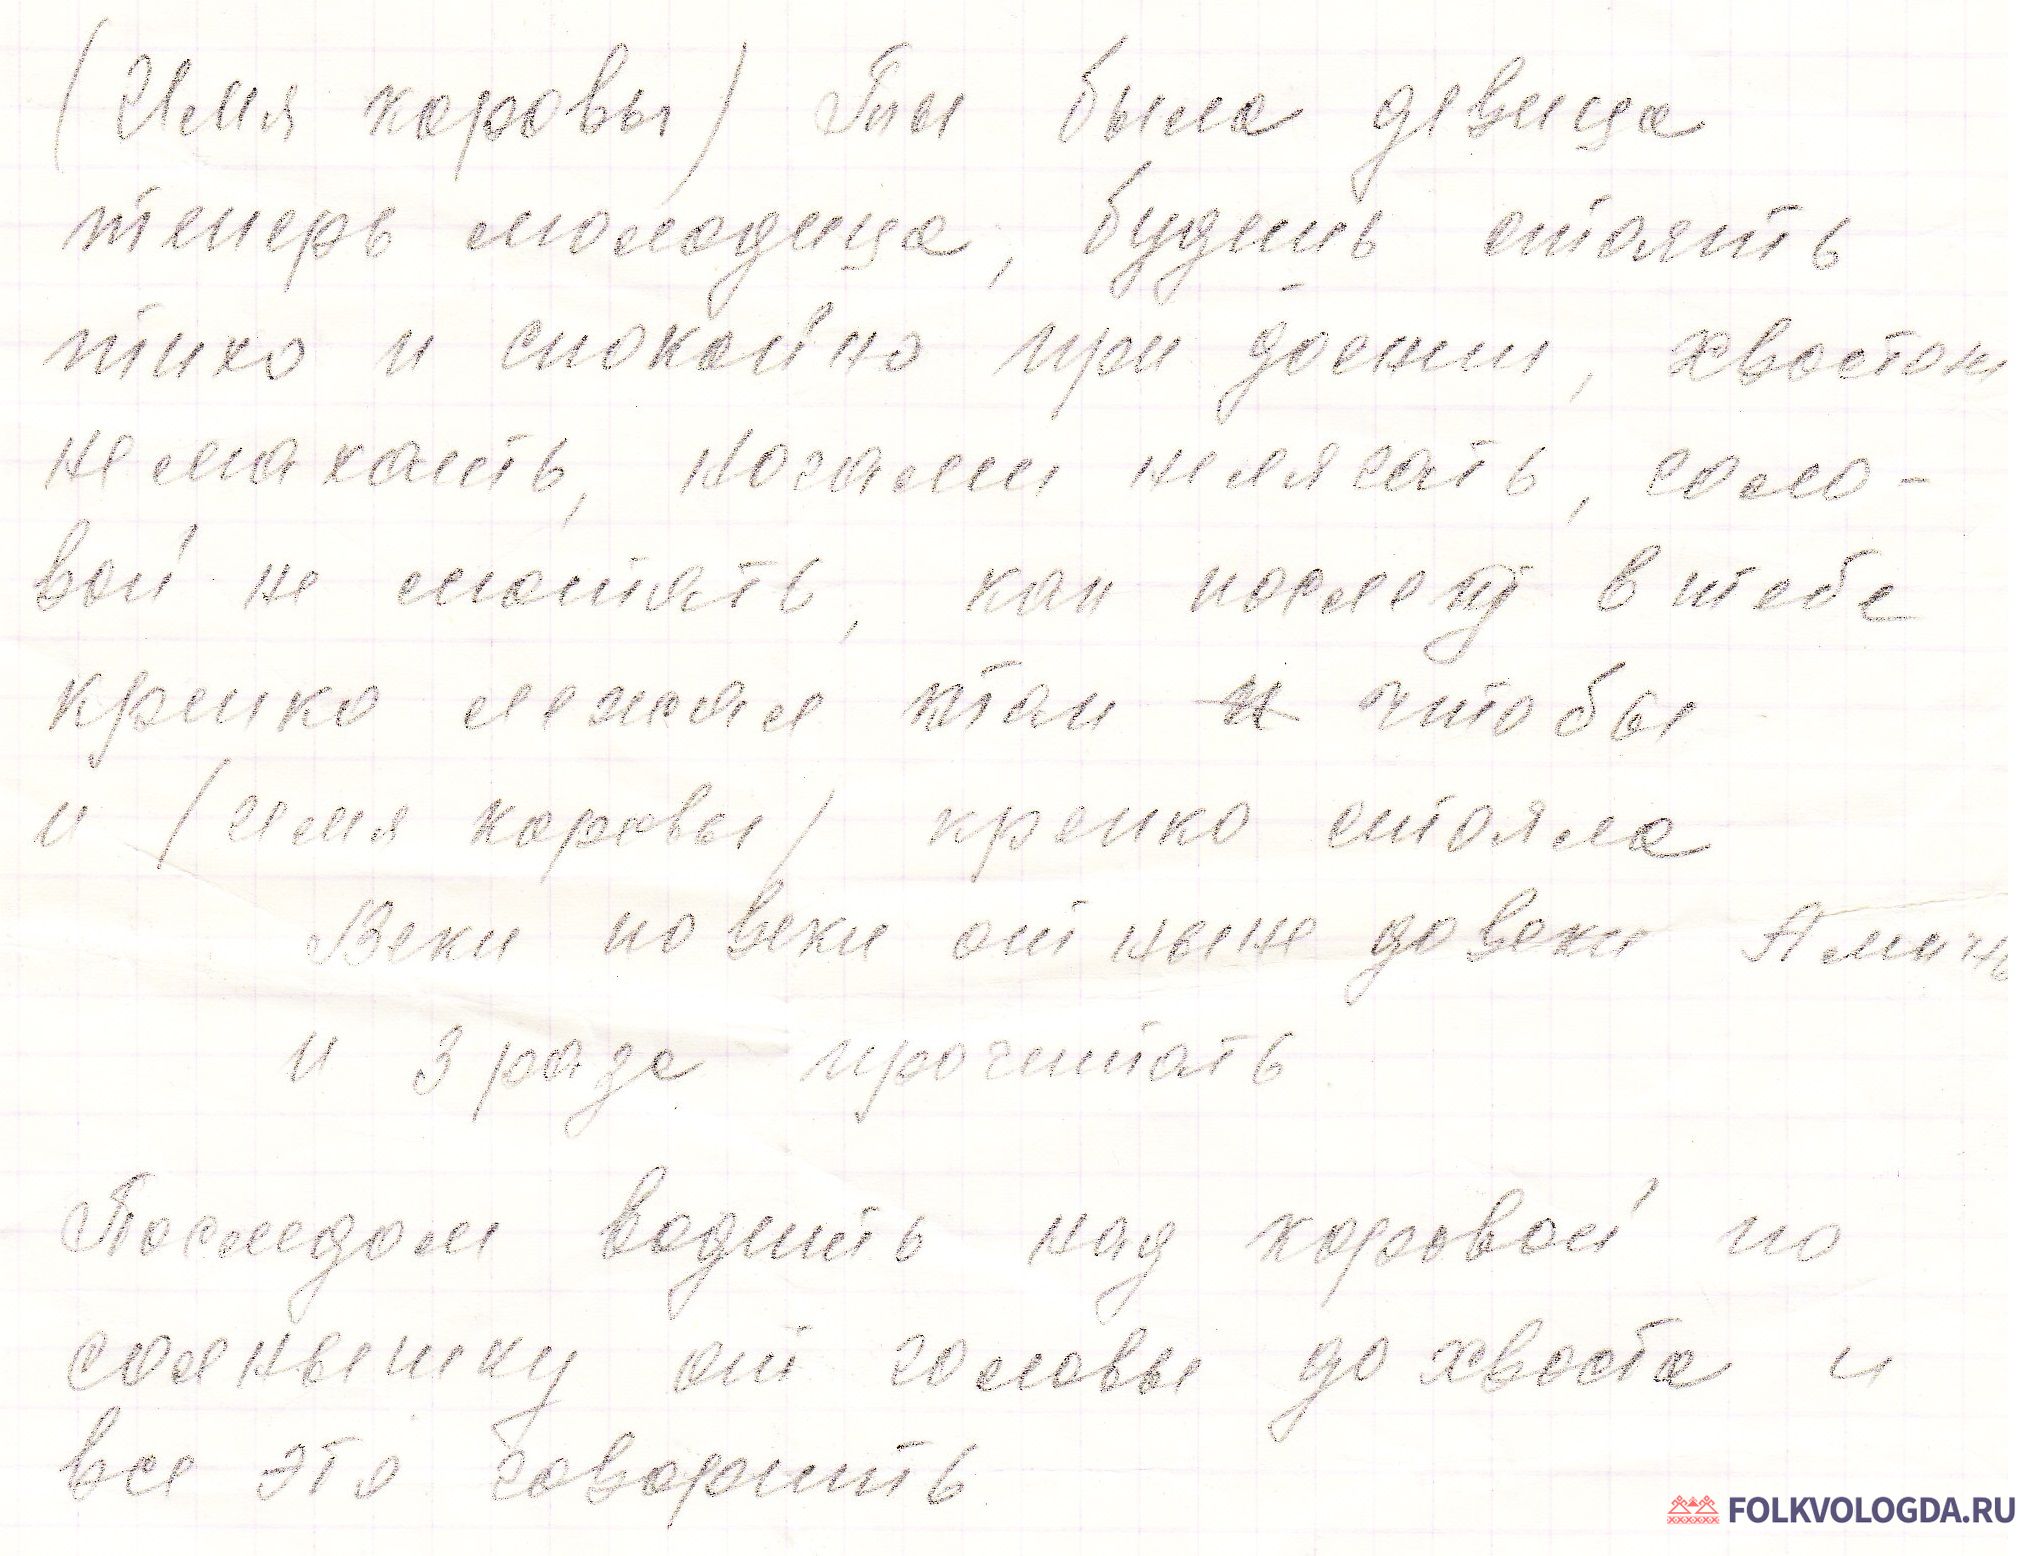 (Имя коровы) Ты была девица
теперь молодица, будишь стоять
тихо и спокойно при доении, хвостом
не махать, ногами не лягать, голо-
вой не мотать, как послед в тебе
крепко лежал так и чтобы
и (имя коровы) крепко стояла
Веки по веки от ныне до веки Аминь
и 3 раза прочитать
Последом водить над коровой по
солнышку от головы до хвоста и
все это говорить
FOLKVOLOGDA.RU